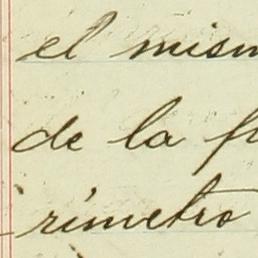 el mism
de la f
rímetro